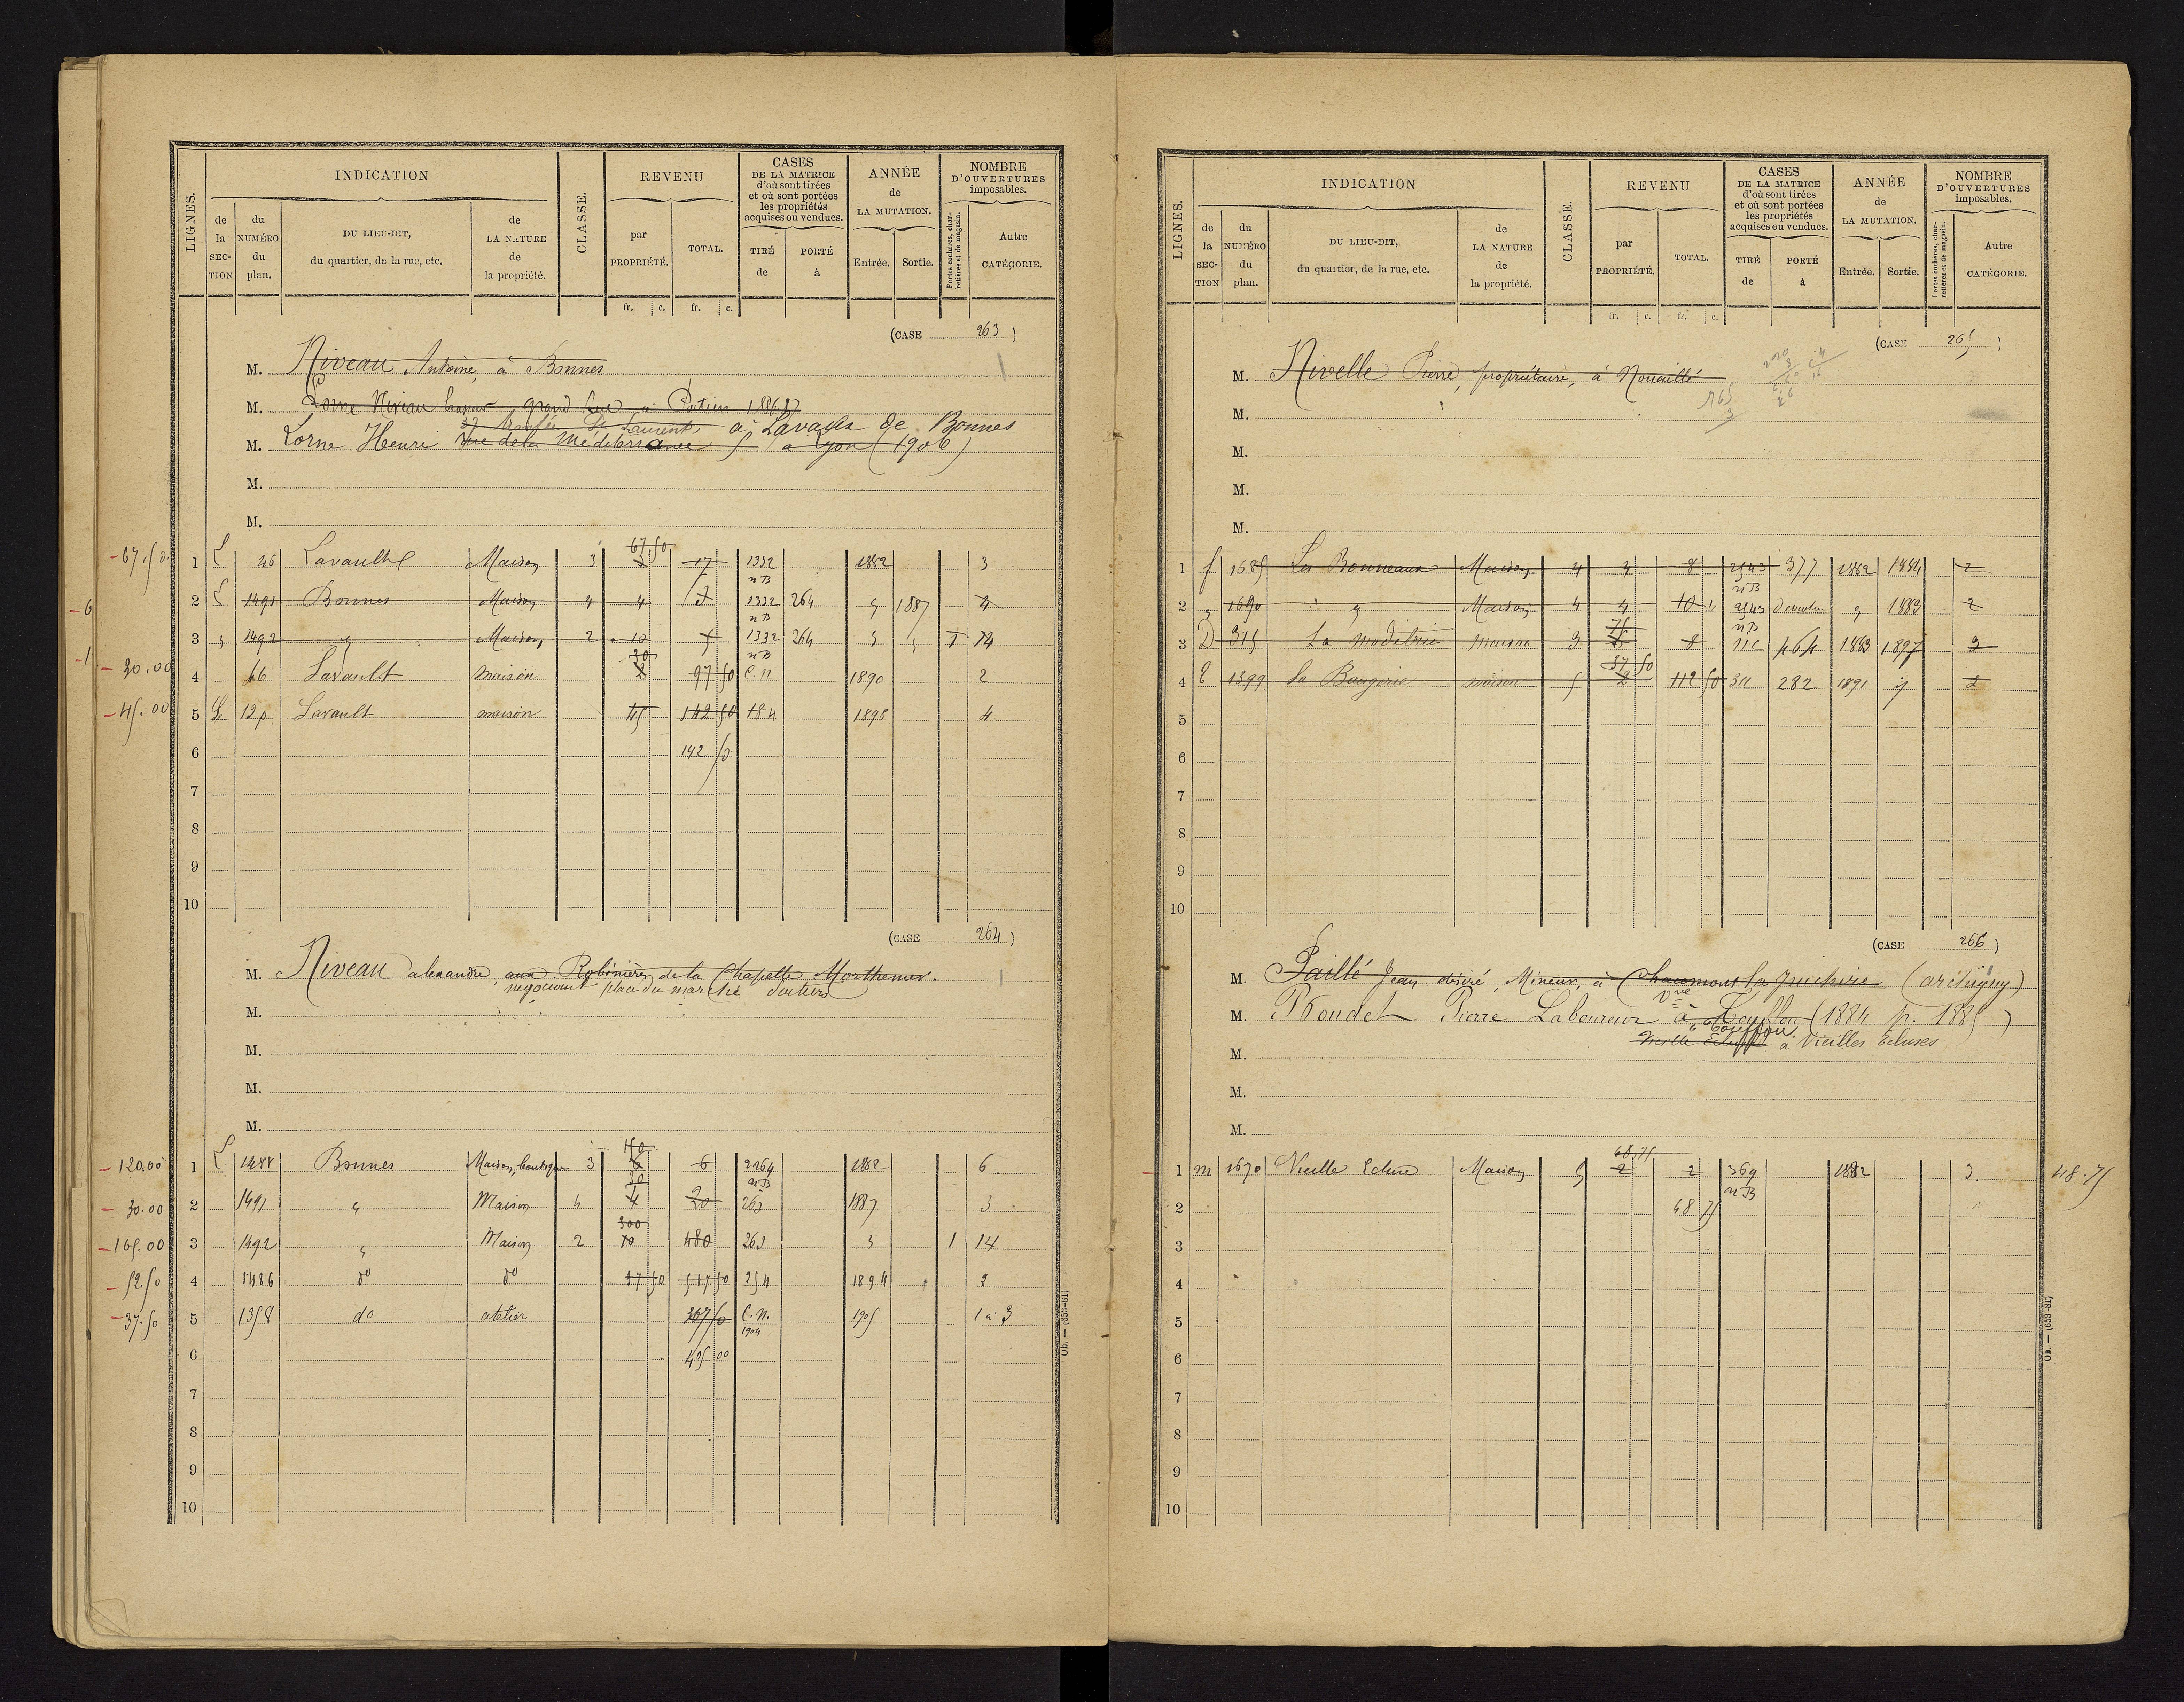 LIGNES.
INDICATION
de la SECTION
du NUMÉRO du plan.
DU LIEU-DIT, du quartier, de la rue, etc.
de LA NATURE de la propriété.
CLASSE.
REVENU
par PROPRIÉTÉ.
TOTAL.
CASES DE LA MATRICE d'où sont tirées et où sont portées les propriétés acquises ou vendues.
TIRÉ de
PORTÉ à
ANNÉE de LA MUTATION.
Entrée.
Sortie.
NOMBRE D'OUVERTURES imposables.
Portes cochères, charretières et de magasin.
Autre CATÉGORIE.
fr. c. fr. c.
(CASE 263)
M. Niveau Antoine, à Bonnes
M. Lorne Niveau grand Rue à Poitiers 1886.87
37 Montée St Laurent à Lavault de Bonnes
M. Lorne Henri rue de la Méditerranée 5 à Lyon (1906)
M.
M.
67 50
1 46 Lavault Maison 3 17 1332 1882 3
nB
2 1491 Bonnes Maison 4 4 1332 264 1887 4
nB
3 1492 Maison 2 10 1332 264 14
30 nB
- 30.00 4 46 Lavault maison 2 97 50 C.n 1890 2
- 45.00 5 12p Lavault maison 45 142 50 184 1898 4
6 142 50
7
8
9
10
(CASE 264)
M. Niveau alexandre, aux Robinières, de la Chapelle Morthemer.
négociant place du marché Poitiers
M.
M.
M.
M.
- 120.00 1 1488 Bonnes Maison, boutique 3 6 6 2264 1882 6.
30 nB
- 30.00 2 1491 Maison 4 4 20 263 1887 3
300
- 165.00 3 1492 Maison 2 10 480 263 1 14
- 52.50 4 1486 do do 37 50 517 50 254 1894 2
- 37.50 5 1358 do atelier 367 50 C.N. 1904 1905 1 à 3
6 405 00
7
8
9
10
Ob. — (653-81)
LIGNES.
INDICATION
de la SECTION
du NUMÉRO du plan.
DU LIEU-DIT, du quartier, de la rue, etc.
de LA NATURE de la propriété.
CLASSE.
REVENU
par PROPRIÉTÉ.
TOTAL.
CASES DE LA MATRICE d'où sont tirées et où sont portées les propriétés acquises ou vendues.
TIRÉ de
PORTÉ à
ANNÉE de LA MUTATION.
Entrée.
Sortie.
NOMBRE D'OUVERTURES imposables.
Portes cochères, charretières et de magasin.
Autre CATÉGORIE.
fr. c. fr. c.
(CASE 265)
M. Nivelle Pierre, propriétaire, à Nouaillé
M.
M.
M.
M.
1 f 1685 Les Bonneaux Maison 4 4 8 2543 377 1882 1884 2
nB
2 1690 Maison 4 4 10 2543 1883 2
75 nB
3 D 315 La maison 3 8 nc 464 1883 1897 3
37 50
4 E 1399 la Baugerie maison 5 2 112 50 311 282 1891 2
5
6
7
8
9
10
(CASE 266)
M. Paillé Jean désiré, Mineur, à Chaumont (archigny)
M. Poudet Pierre Laboureur à Touffou (1884 p. 1885)
Vve
à Touffou
M. Vieille Ecluse à Vieilles Ecluses
M.
M.
48.75
1 m 1670 Vieille Ecluse Maison 5 2 2 369 1882 3. 48.75
nB
2 48 75
3
4
5
6
7
8
9
10
Ob. — (653-81)